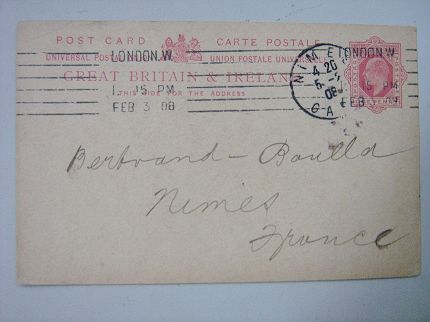 POST CARD CARTE POSTALE
UNIVERSAL POSTAL UNION UNION POSTALE UNIVERSELLE
GREAT BRITAIN & IRELAND
THIS SIDE FOR THE ADDRESS
LONDON.W.
1. 15 PM
FEB 3 08
NIMES
4 20
GA
LONDON.W
15 PM
FEB
Bertrand - Boulla
Nimes
France